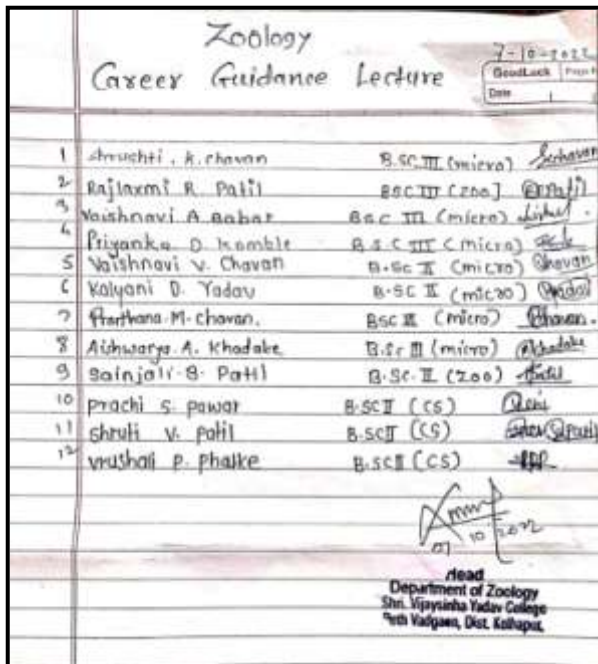 Zoology
Career Guidance Lecture
7-10-2022
GoodLuck Page No
Date
1 Shrushti . K. chavan B.SC III (micro) Schavan
2 Rajlaxmi R Patil BSC III (ZOO] RPatil
3 Vaishnavi A Babar B.SC III (micro)
4 Priyanka D Kamble B.S.C III (micro)
5 Vaishnavi V. Chavan B.Sc II (micro) Chavan
6 Kalyani D. Yadav B.SC II (micro) Yadav
7 Prarthana M. chavan. BSC II (micro) Chavan.
8 Aishwarya. A. Khadake B.Sc III (micro) Khadake
9 Sainjali. S. Patil B.SC. II (ZOO) Patil
10 Prachi S. pawar B.SC II (CS)
11 shruti V. patil B.SC II (CS) Patil
12 vrushali P. phalke B.SC II (CS)
07 10 2022
Head
Department of Zoology
Shri. Vijaysinha Yadav College
Peth Vadgaon, Dist. Kolhapur.